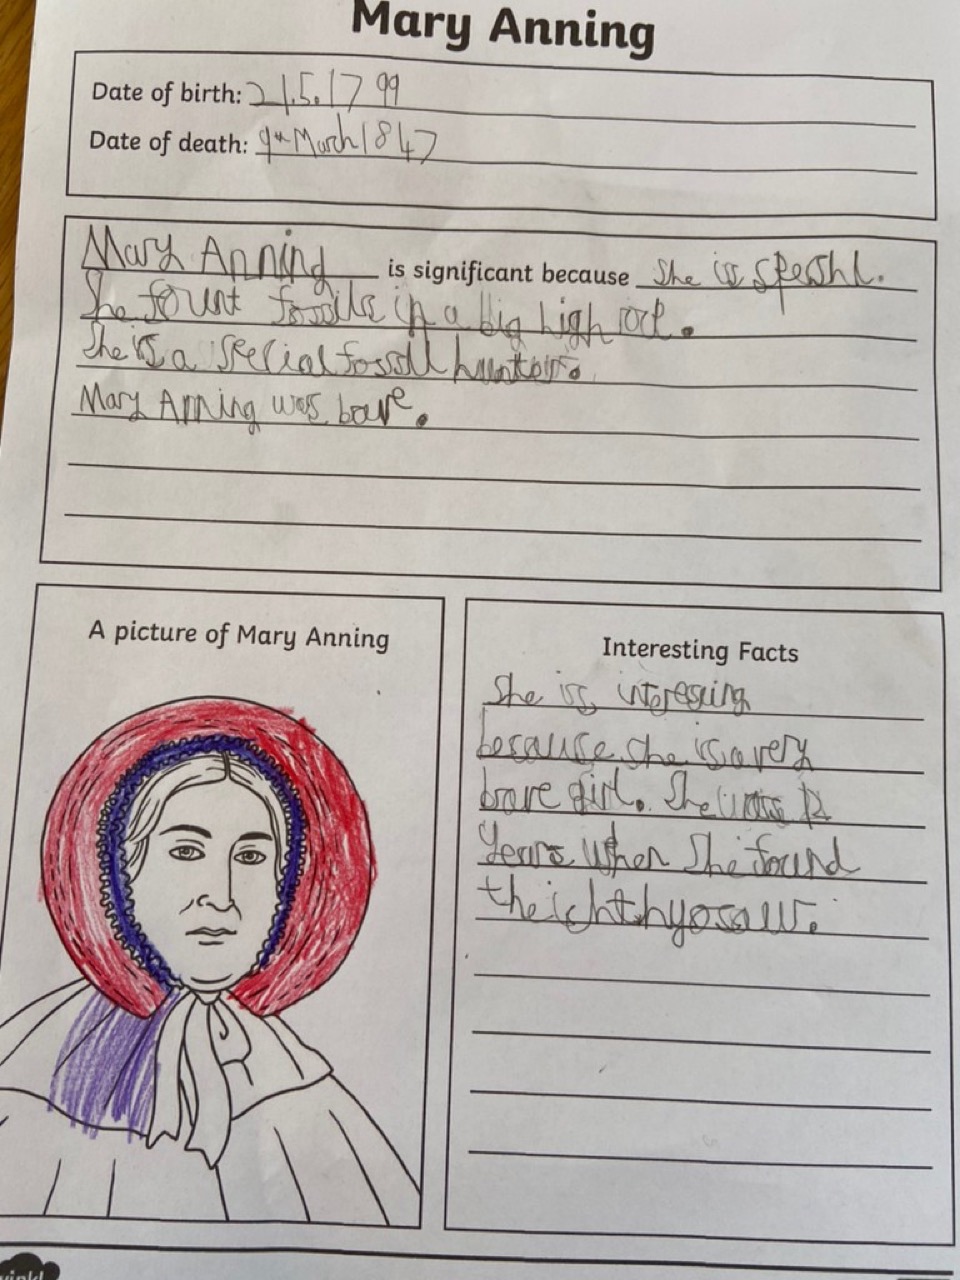 Mary Anning
Date of birth: 21.5.1799
Date of death: 9th March 1847
Mary Anning is significant because She is speshl.
She fount fossils in a big high
She is a special fossil hunter.
Mary Anning was bave.
A picture of Mary Anning
Interesting Facts
She is interesing
because she is a very
brave girl. She was 12
years when She found
the ichthyosaur.